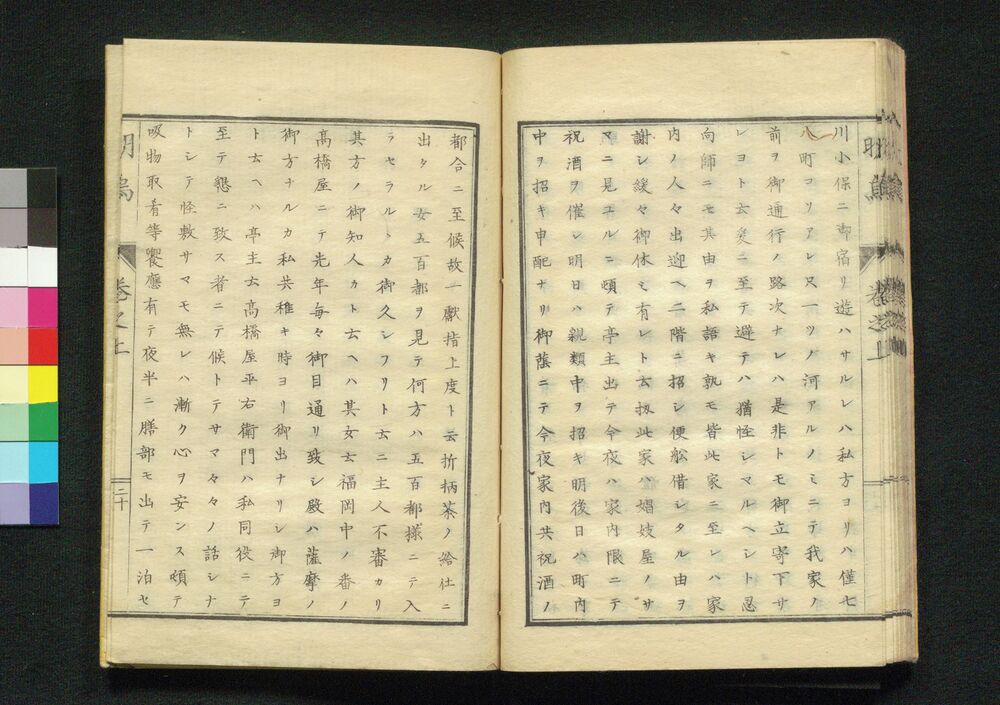 川小保ニ御宿リ遊ハサルレハ私方ヨリハ僅七
八町コソアレ只一ツノ河アルノミニテ我家ノ
前ヲ御通行ノ路次ナレハ是非トモ御立寄下サ
レヨト云爰ニ至テ避テハ猶怪シマルヘシト忍
向師ニモ其由ヲ私語キ孰モ皆此家ニ至レハ家
内ノ人々出迎ヘ二階ニ招シ便船借シタル由ヲ
謝シ緩々御休ミ有レト云扨此家ハ娼妓屋ノサ
マニ見エルニ頓テ亭主出テ今夜ハ家内限ニテ
祝酒ヲ催シ明日ハ親類中ヲ招キ明後日ハ町内
中ヲ招キ申配ナリ御蔭ニテ今夜家内共祝酒ノ
都合ニ至候故一獻指上度ト云折柄茶ノ給仕ニ
出タル女五百都ヲ見テ何方ハ五百都様ニテ入
ラセラルヽカ御久シフリト云ニ主人不審カリ
其方ノ御知人カト云ヘハ其女云福岡中ノ番ノ
高橋屋ニテ先年毎々御目通リ致シ殿ハ薩摩ノ
御方ナルカ私共稚キ時ヨリ御出ナリシ御方ヨ
ト云ヘハ亭主云高橋屋平右衛門ハ私同役ニテ
至テ懇ニ致ス者ニテ候トテサマ々々ノ話シナ
トシテ怪敷サマモ無レハ漸ク心ヲ安ンス頓テ
吸物取肴等饗應有テ夜半ニ膳部モ出テ一泊セ
明烏
巻之上
二十